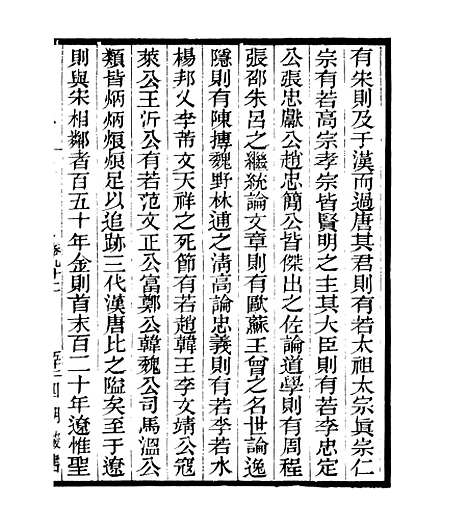 有宋則及于漢而過唐其君則有若太祖太宗眞宗仁
宗有若高宗孝宗皆賢明之主其大臣則有若李忠定
公張忠獻公趙忠簡公皆傑出之佐論道學則有周程
張邵朱呂之繼統論文章則有歐蘇王曾之名世論逸
隱則有陳摶魏野林逋之清高論忠義則有若李若水
楊邦乂李芾文天祥之死節有若趙韓王李文靖公寇
萊公王沂公有若范文正公富鄭公韓魏公司馬溫公
類皆炳炳烺烺足以追跡三代漢唐比之隘矣至于遼
則與宋相鄰者百五十年金則首末百二十年遼惟聖
四明叢書